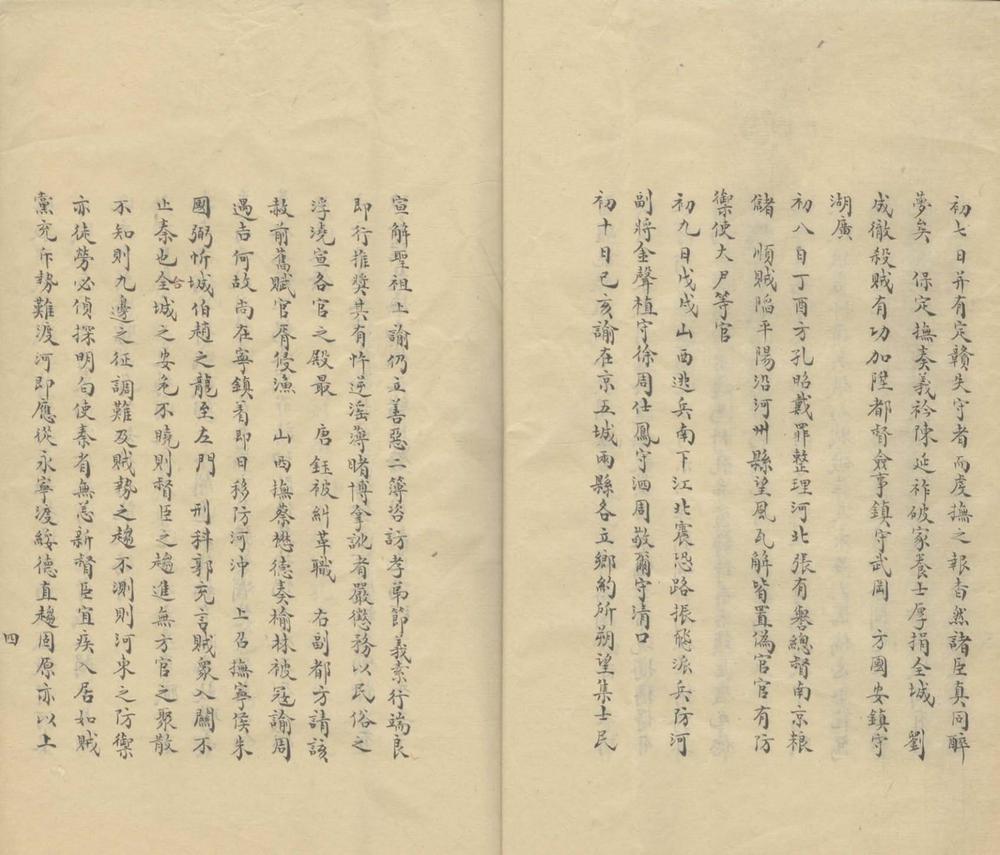 初七日并有定贛失守者而虔撫之報杳然諸臣真同醉
夢矣　保定撫奏義衿陳延祚破家養士厚捐全城　劉
成徹殺賊有功加陞都督僉事鎮守武岡　方國安鎮守
湖廣
初八日丁酉方孔昭戴罪整理河北張有譽總督南京粮
儲　順賊陷平陽沿河州縣望風瓦解皆置偽官官有防
禦使大尹等官
初九日戊戌山西逃兵南下江北震恐路振飛派兵防河
副將金聲植守徐周仕鳳守泗周敬爾守清口
初十日己亥諭在京五城兩縣各立鄉約所朔望集士民
宣解聖祖上諭仍立善惡二簿咨訪孝弟節義素行端良
即行推獎其有忤逆淫薄賭博拿訛者嚴懲務以民俗之
浮澆宣各官之殿最　唐鈺被糾革職　右副都方請該
赦前舊贓官胥侵漁　山西撫蔡懋德奏榆林被寇諭周
遇吉何故尚在寧鎮着即日移防河冲　上召撫寧侯朱
國弼忻城伯趙之龍至左門　刑科郭充言賊衆入關不
止秦也全城之安危不曉則督臣之趨進無方官之聚散
台
不知則九邊之征調難及賊勢之趨不測則河東之防禦
亦徒勞必偵探明白使秦省無恙新督臣宜疾入居如賊
黨充斥勢難渡河即應從永寧渡綏德直趨固原亦以上
四